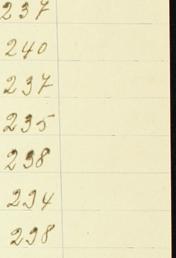 237
240
237
235
238
234
238